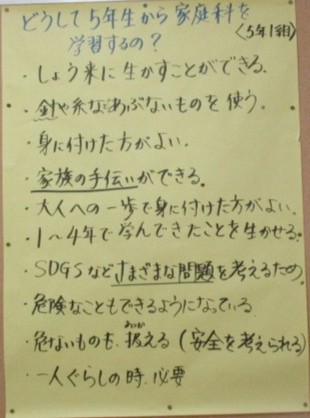 どうして5年生から家庭科を
学習するの？
〈5年1組〉
・しょう来に生かすことができる。
・針や糸などあぶないものを使う。
・身に付けた方がよい。
・家族の手伝いができる。
・大人への一歩で身に付けた方がよい。
・1〜4年で学んできたことを生かせる。
・SDGSなどさまざまな問題を考えるため。
・危険なこともできるようになっている。
・危ないものも、扱える(安全を考えられる)
・一人ぐらしの時、必要